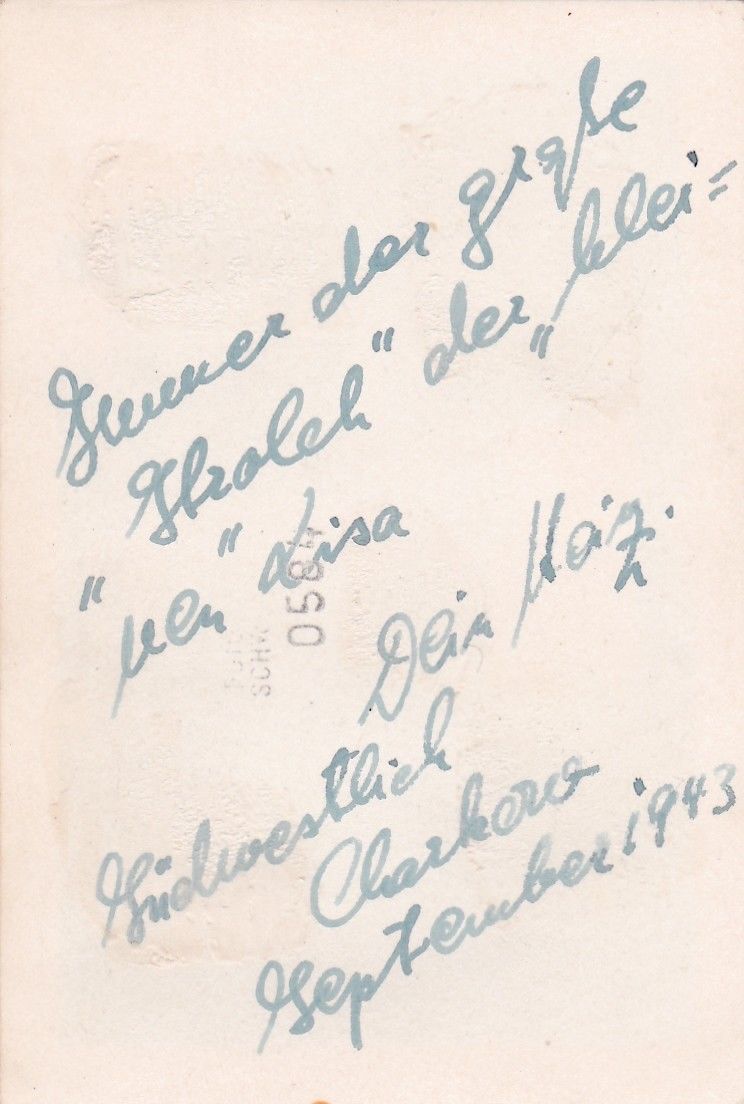 Immer der große
Strolch" der „klei=
"nen" Lisa
Dein
Südwestlich
Charkow
September 1943
0584
SCHW